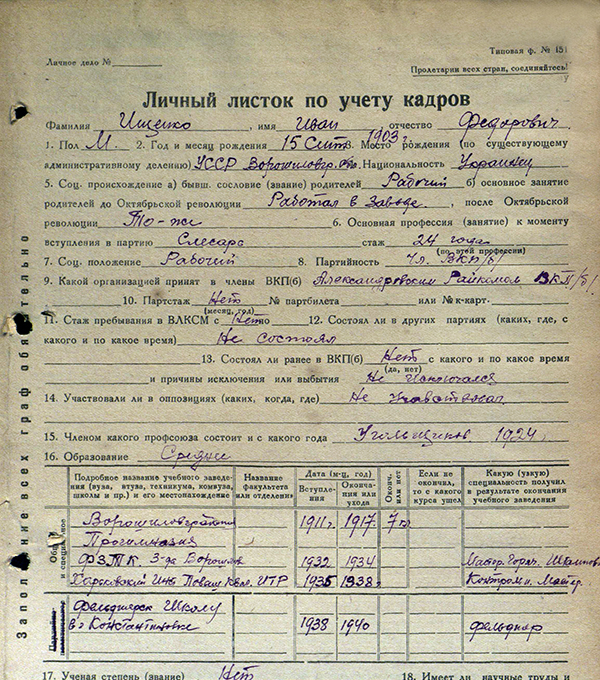 Типовая ф. № 151
Личное дело №
Пролетарии всех стран, соединяйтесь!
Личный листок по учету кадров
Фамилия Ищенко, имя Иван отчество Федорович
1. Пол М. 2. Год и месяц рождения 15 Сент. 1903. 3. Место рождения (по существующему
административному делению) УССР Ворошиловгр. обл. 4. Национальность Украинец
5. Соц. происхождение а) бывш. сословие (звание) родителей Рабочий б) основное занятие
родителей до Октябрьской революции Работал в Заводе, после Октябрьской
революции То-же 6. Основная профессия (занятие) к моменту
вступления в партию Слесарь стаж 24 года
(по этой профессии)
7. Соц. положение Рабочий 8. Партийность Чл. ВКП/б/
9. Какой организацией принят в члены ВКП(б) Александровским Райкомом ВКП/б/
10. Партстаж Нет № партбилета или № к-карт.
(месяц, год)
11. Стаж пребывания в ВЛКСМ с Нет по 12. Состоял ли в других партиях (каких, где, с
какого и по какое время) Не состоял
13. Состоял ли ранее в ВКП(б) Нет с какого и по какое время
(да, нет)
и причины исключения или выбытия Не исключался
14. Участвовали ли в оппозициях (каких, когда, где) Не
15. Членом какого профсоюза состоит и с какого года Угольщиков 1924.
16. Образование Среднее
Подробное название учебного заведения (вуза, втуза, техникума, комвуза, школы и пр.) и его местонахождение
Название факультета или отделения
Дата (м-ц, год)
Вступления
Окончания или ухода
Оконч. или нет
Если не окончил, то с какого курса ушел
Какую (узкую) специальность получил в результате окончания учебного заведения
Общее и специальное
Ворошиловградская 1911 г. 1917. 7 кл.
Прогимназия
ФЗТК. З-да Ворошилов 1932 1934 Мастер Горн.
Харьковский Инс Повыш Квал. ИТР. 1935 1938 г. Мастер.
Фельдшерск Школу
в г Константиновке 1938 1940 фельдшер
17. Ученая степень (звание) Нет 18. Имеет ли научные труды и
Заполнение всех граф обязательно